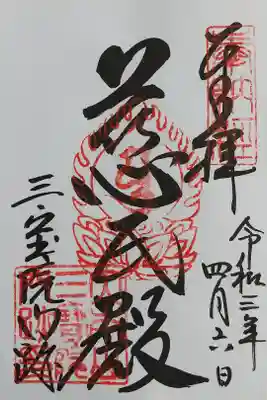 奉拝
令和三年
四月六日
慈氏殿
三宝院門跡